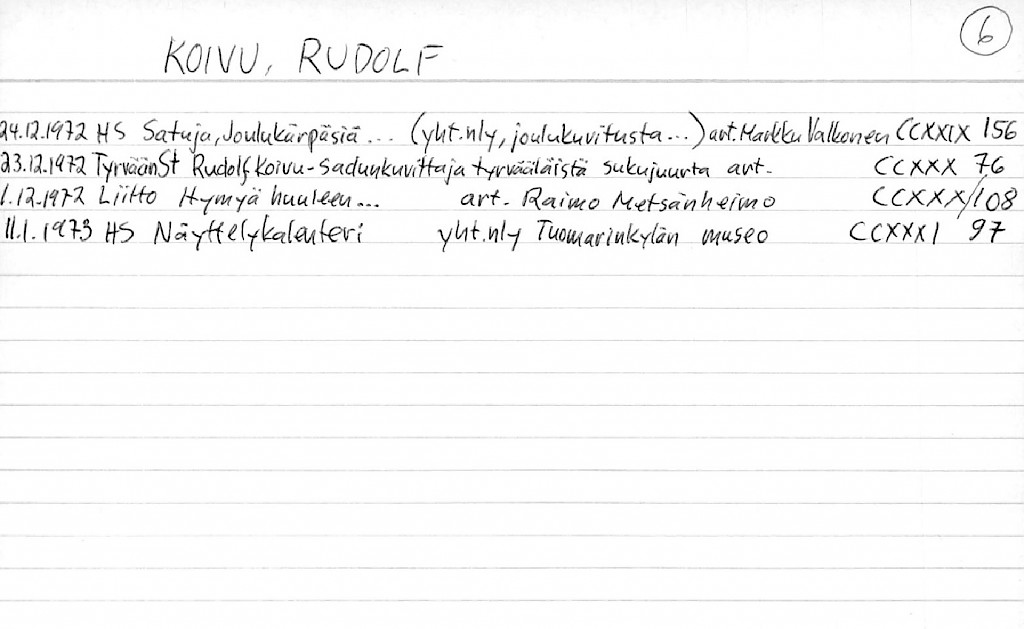 6
KOIVU, RUDOLF
24.12.1972 HS Satuja, Joulukärpäsiä ... (yht.nly, joulukuvitusta...) art. Markku Valkonen CCXXIX 156
23.12.1972 TyrväänSt Rudolf Koivu - Sadunkuvittaja tyrvääläistä sukujuurta art. CCXXX 76
1.12.1972 Liitto Hymyä huuleen... art. Raimo Metsänheimo CCXXX/108
11.1.1973 HS Näyttelykalenteri yht.nly Tuomarinkylän museo CCXXXI 97